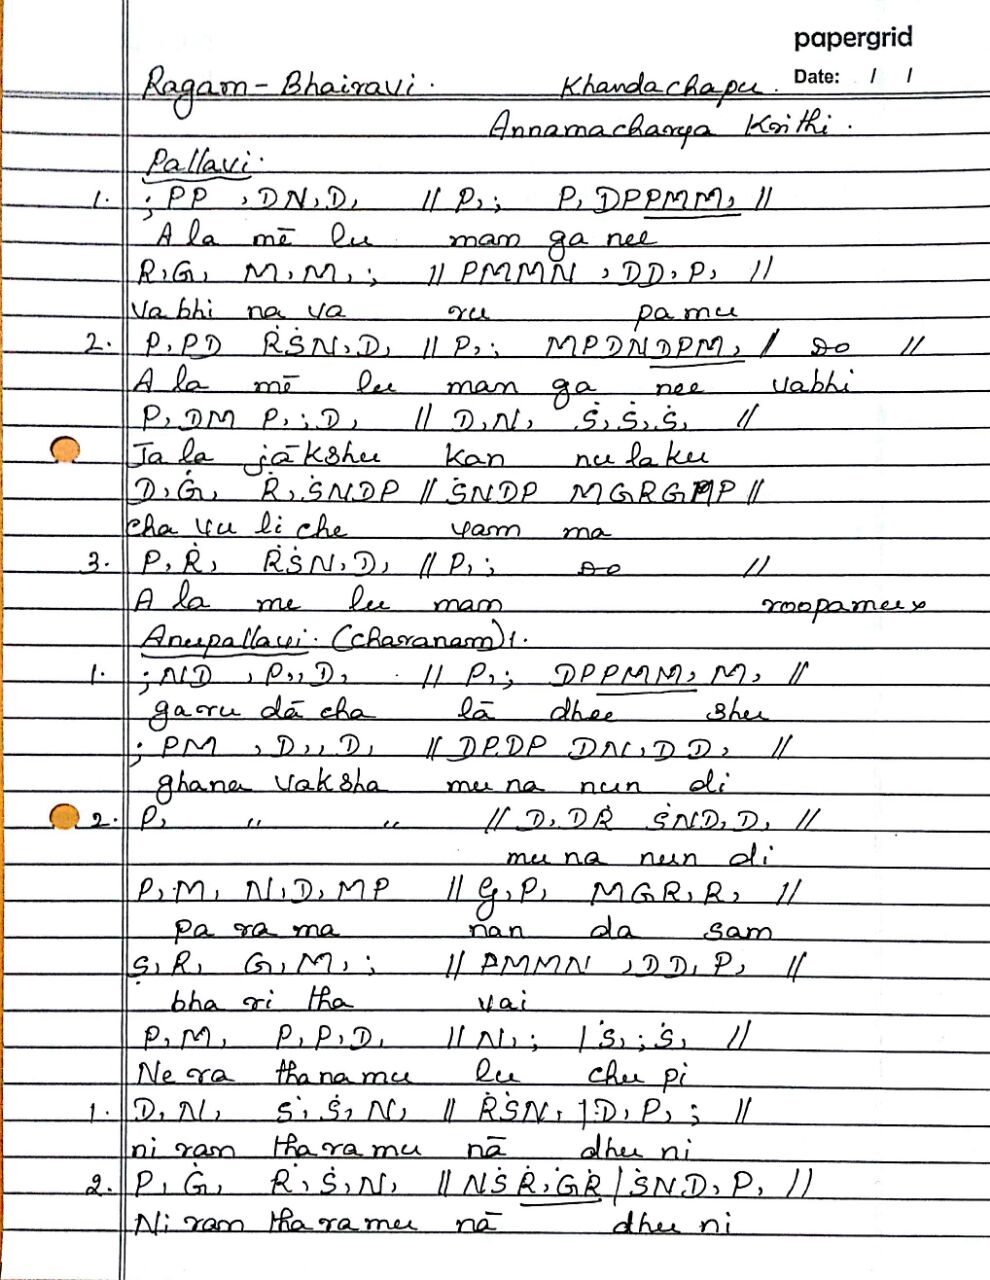 papergrid
Date: / /
Ragam - Bhairavi. Khandachapu.
Annamacharya Krithi.
Pallavi.
1. ; PP , DN,D, // P,; P, DPPMM, //
A la mē lu mam ga nee
R,G, M,M,; // PMMN , DD,P, //
Vabhi na va ru pamu
2. P, PD ṘṠN,D, // P,; MPDNDPM, / Do //
A la mē lu man ga nee vabhi
P, DM P,; D, // D,N, Ṡ,Ṡ,Ṡ, //
Ja la jākshu kan nu laku
D,Ġ, Ṙ,ṠNDP // ṠNDP MGRGMP //
cha vu li che yam ma
3. P,Ṙ, ṘṠN,D, // P,; Do //
A la me lu mam roopamux
Anupallavi. (charanam) 1.
1. ; ND , P,,D, // P,; DPPMM, M, //
garu dā cha lā dhee shu
; PM , D,,D, // DPDP DN,DD, //
ghana vaksha mu na nun di
2. P, " " // D,DṘ ṠND,D, //
mu na nun di
P,M, N,D,MP // G,P, MGR,R, //
pa ra ma nan da sam
Ṣ,R, G,M,; // PMMN ,DD,P, //
bha ri tha vai
P,M, P,P,D, // N,; / Ṡ,;Ṡ, //
Ne ra thanamu lu chu pi
1. D,N, Ṡ,Ṡ,N, // ṘṠN, / D,P,; //
ni ram tharamu nā dhu ni
2. P,Ġ, Ṙ,Ṡ,N, // NṠṘ,ĠṘ / ṠND,P, //
Ni ram tharamu nā dhu ni